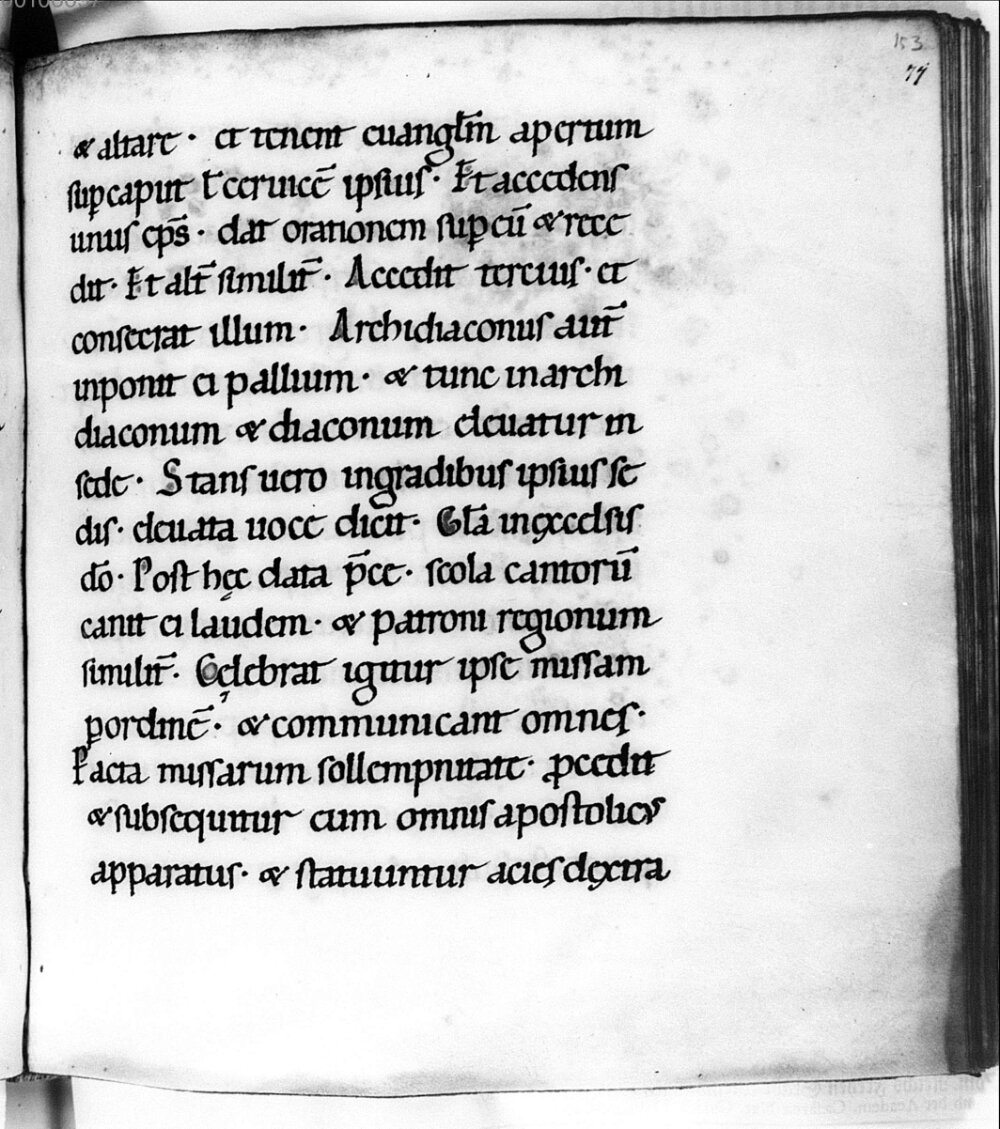 153
77
& altare · et tenent euangl̄m apertum
sup̱ caput ł ceruicē ipsius · Et accedens
unus ep̄s · dat orationem sup̱ eū & rece
dit · Et alt̄ similit̄ · Accedit tercius · et
consecrat illum · Archidiaconus aut̄
inponit ei pallium · & tunc in archi
diaconum & diaconum eleuatur in
sede · Stans uero in gradibus ipsius se
dis · eleuata uoce dicit · Gła in excelsis
dō · Post hęc data p̄ce · scola cantorū
canit ei laudem · & patroni regionum
similit̄ · Cęlebrat igitur ipse missam
p̱ ordinē · & communicant omnes ·
Facta missarum sollempnitate · ꝓcedit
& subsequitur eum omnis apostolicus
apparatus · & statuuntur acies dextra